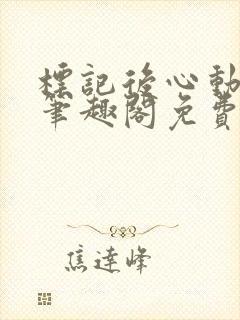 標記後心動
筆趣閣免費
焦達峰